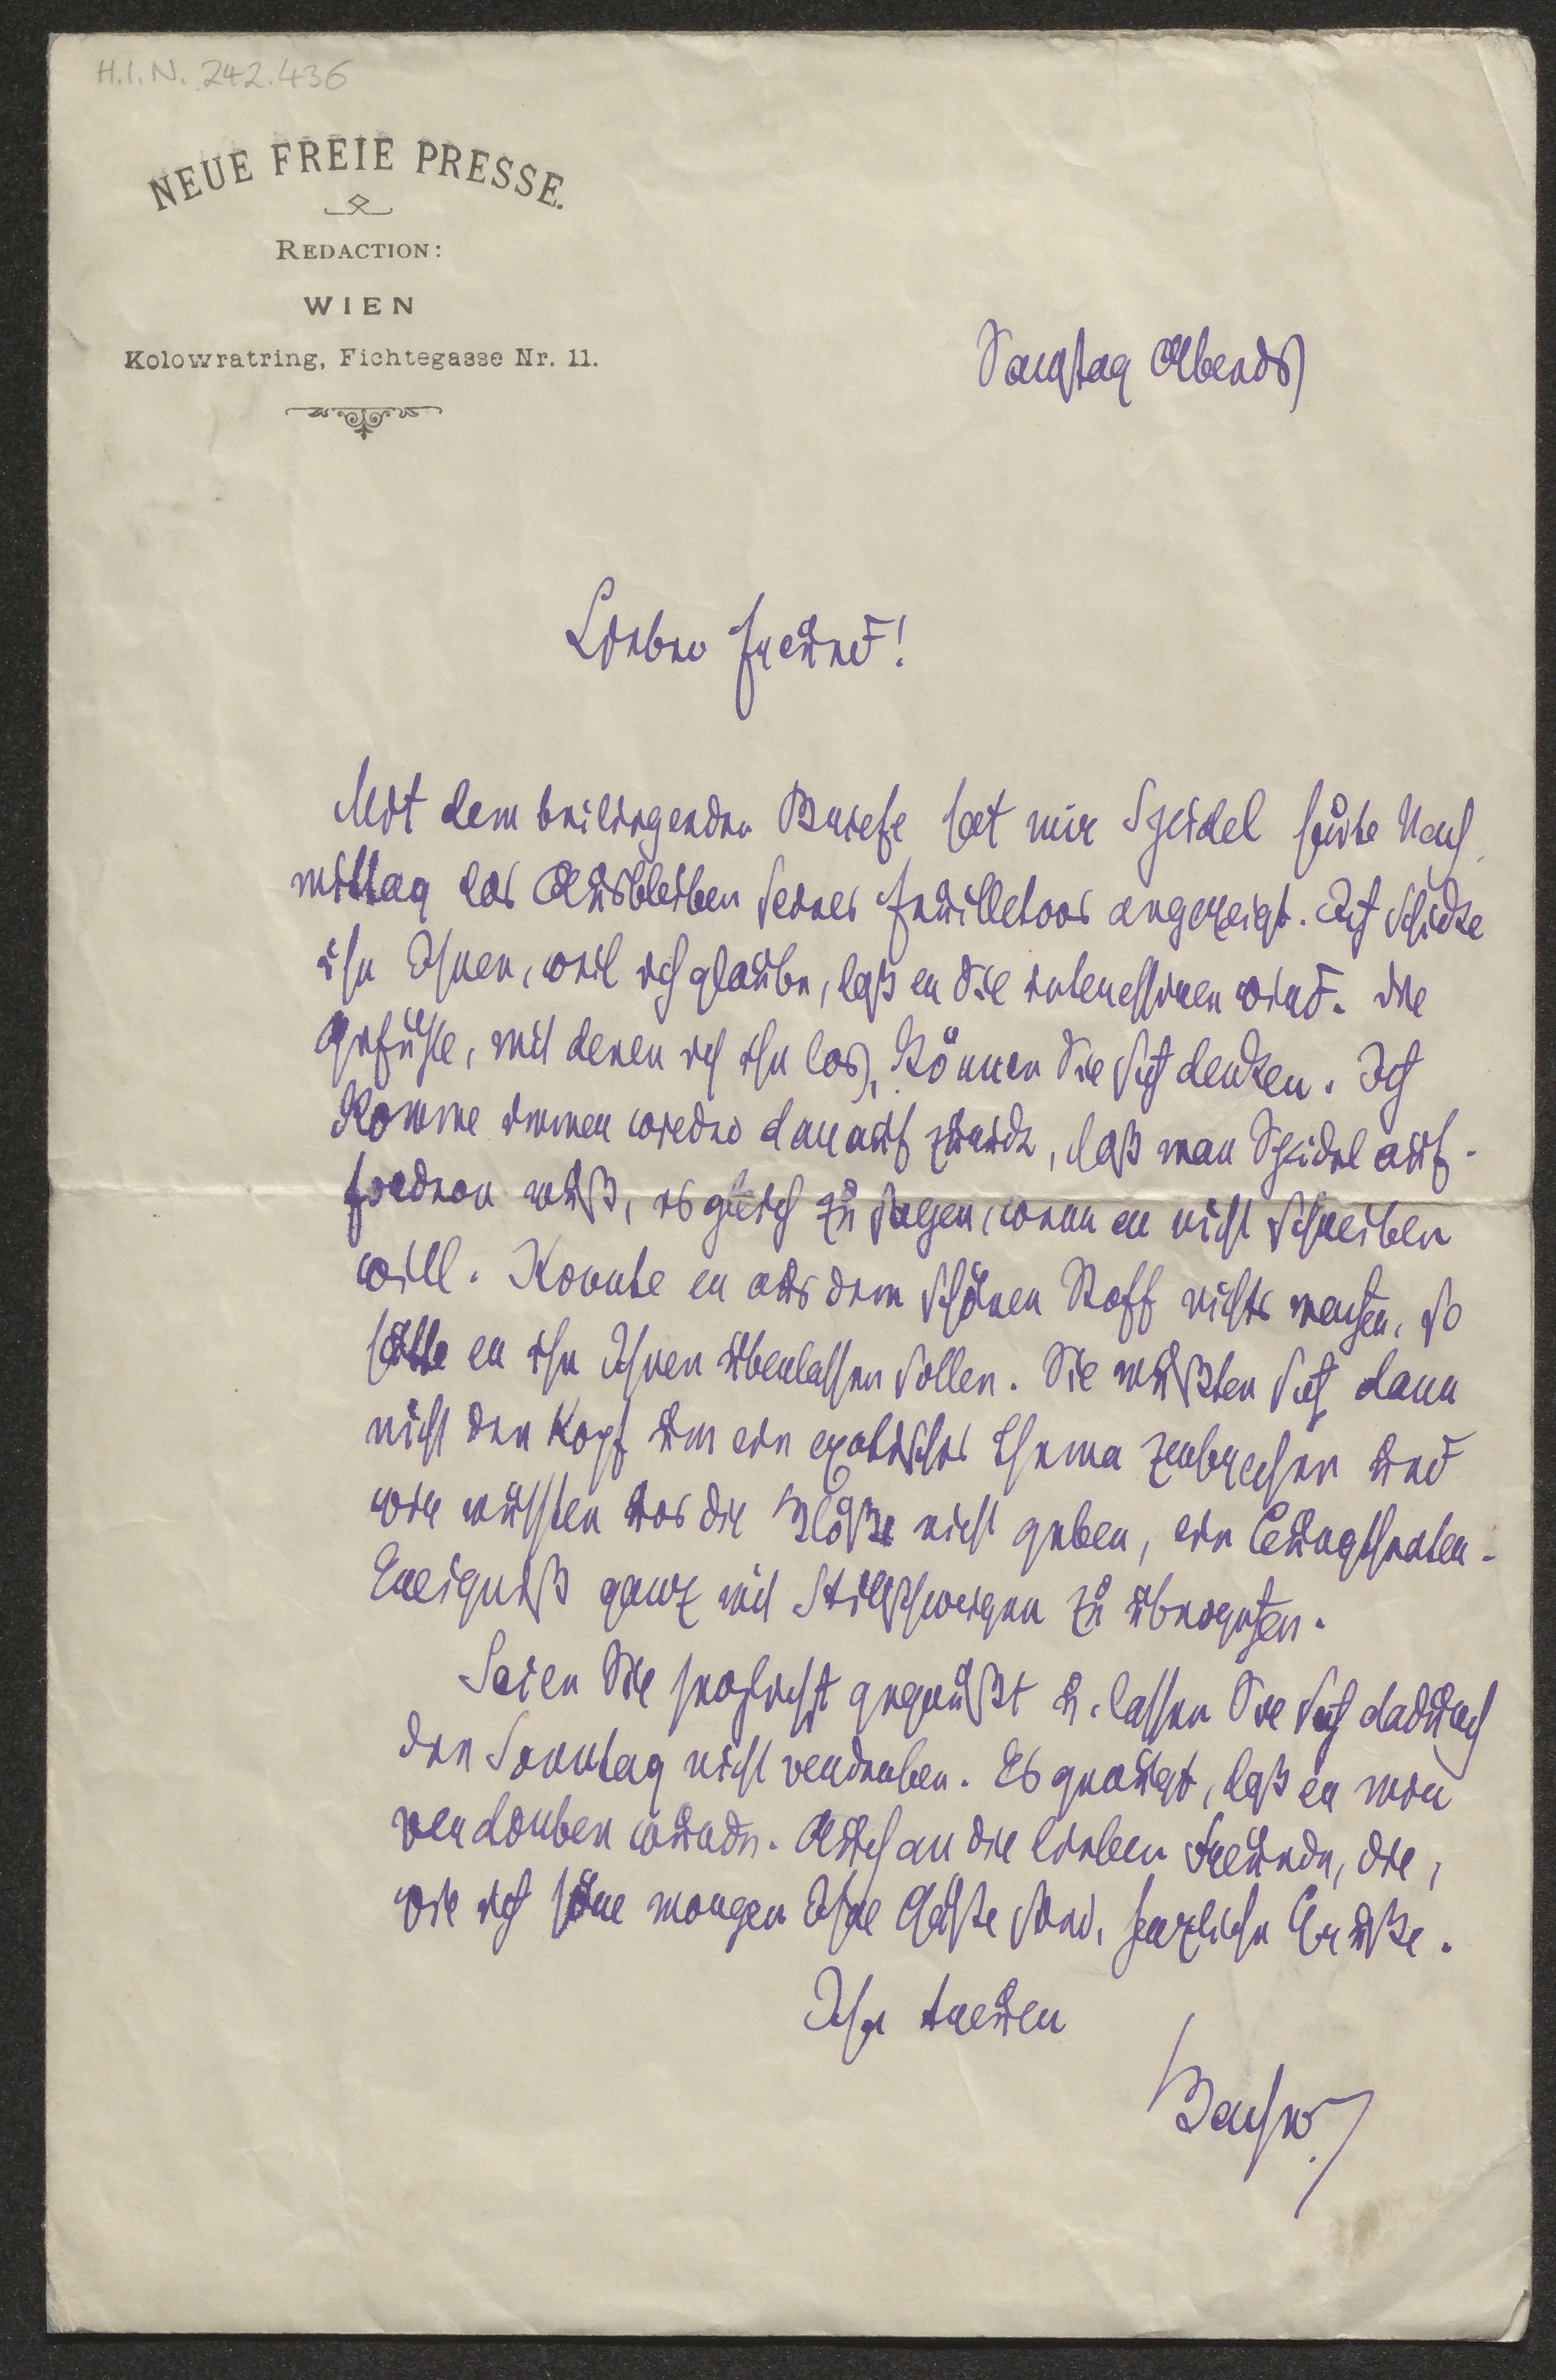 H.I.N. 242.436
NEUE FREIE PRESSE.
REDACTION:
WIEN
Kolowratring, Fichtegasse Nr. 11.
Samstag Abends
Lieber Freund!
Mit dem beiliegenden Briefe hat mir Speidel heute Nach-
mittag das Ausbleiben seines Feuilletons angezeigt. Ich schicke
ihn Ihnen, weil ich glaube, daß er Sie interessiren wird. Die
Gefühle, mit denen ich ihn las, können Sie sich denken. Ich
komme immer wieder darauf zurück, daß man Speidel auf-
fordern muß, es gleich zu sagen, wenn er nicht schreiben
will. Konnte er aus dem schönen Stoff nichts machen, so
hätte er ihn Ihnen überlassen sollen. Sie müßten sich dann
nicht den Kopf um ein exotisches Thema zerbrechen und
wir müssten uns die Blöße nicht geben, ein Burgtheater-
Ereigniß ganz mit Stillschweigen zu übergehen.
Seien Sie herzlichst gegrüßt u. lassen Sie sich dadurch
den Sonntag nicht verderben. Es genügt, daß er mir
verdorben wurde. Auch an die lieben Freunde, die,
wie ich höre morgen Ihre Gäste sind, herzliche Grüße.
Ihr treuer
Bacher